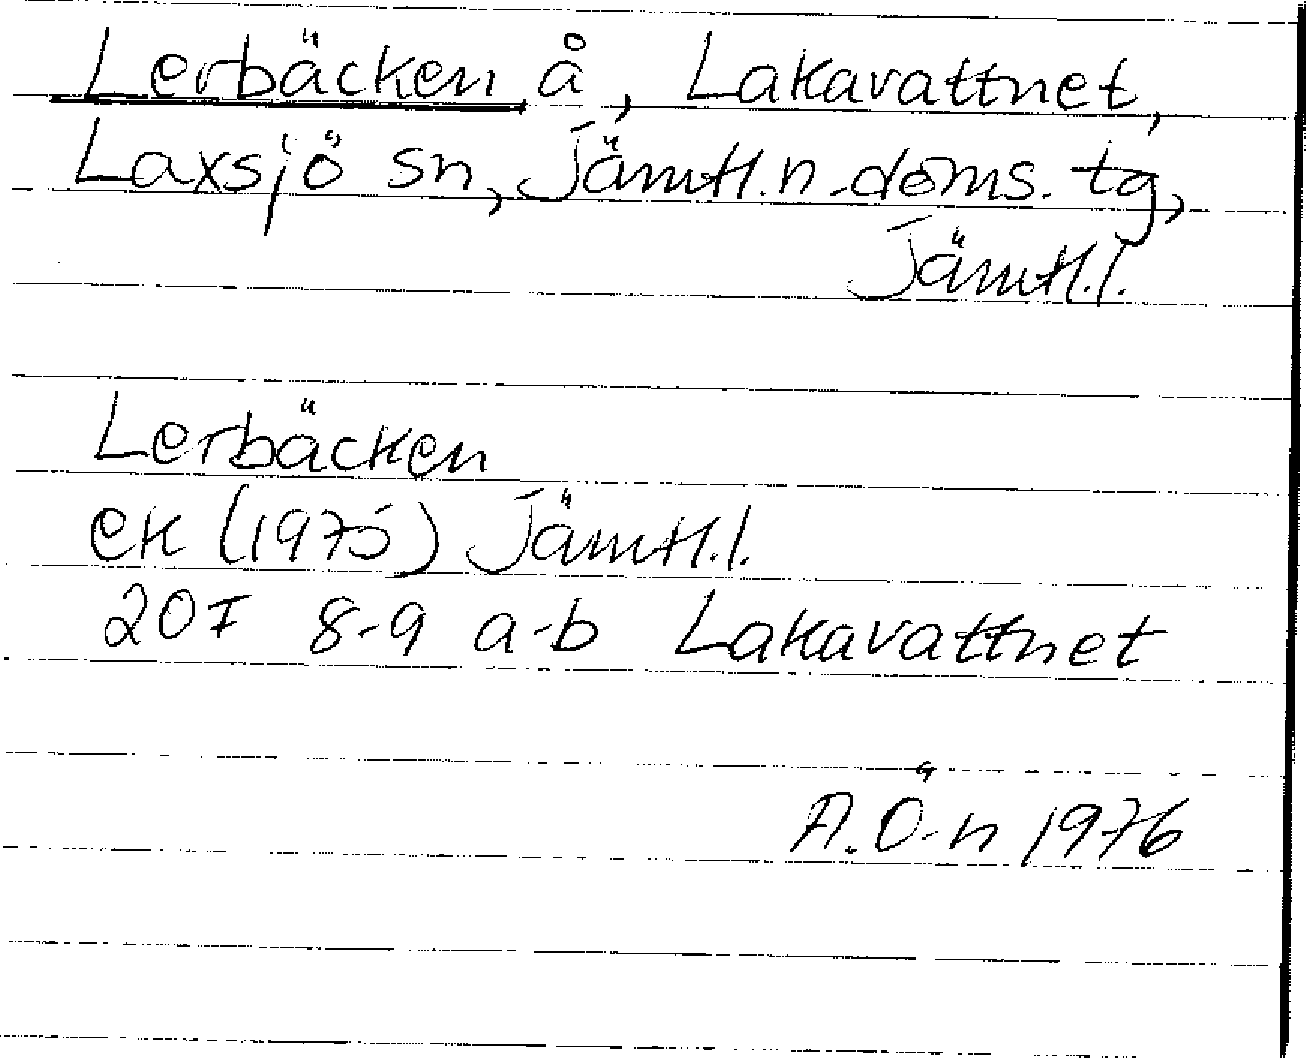 Lerbäcken å, Lakavattnet,
Laxsjö sn, Jämtl.n.doms.tg,
Jämtl.l.
Lerbäcken
ek (1975) Jämtl.l.
20F 8-9 a-b Lakavattnet
A.Ö-n 1976